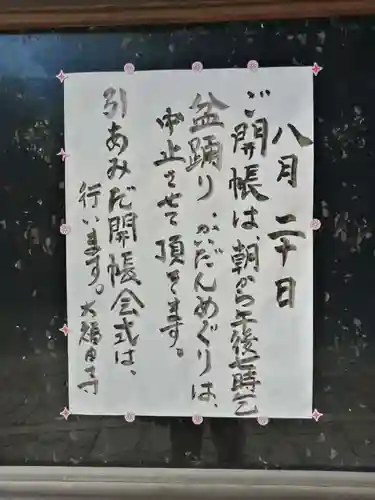 八月二十日
ご開帳は、朝から午後七時迄
盆踊り、かいだんめぐりは、
中止させて頂きます。
引あみだ開帳会式は、
行います。大福田寺